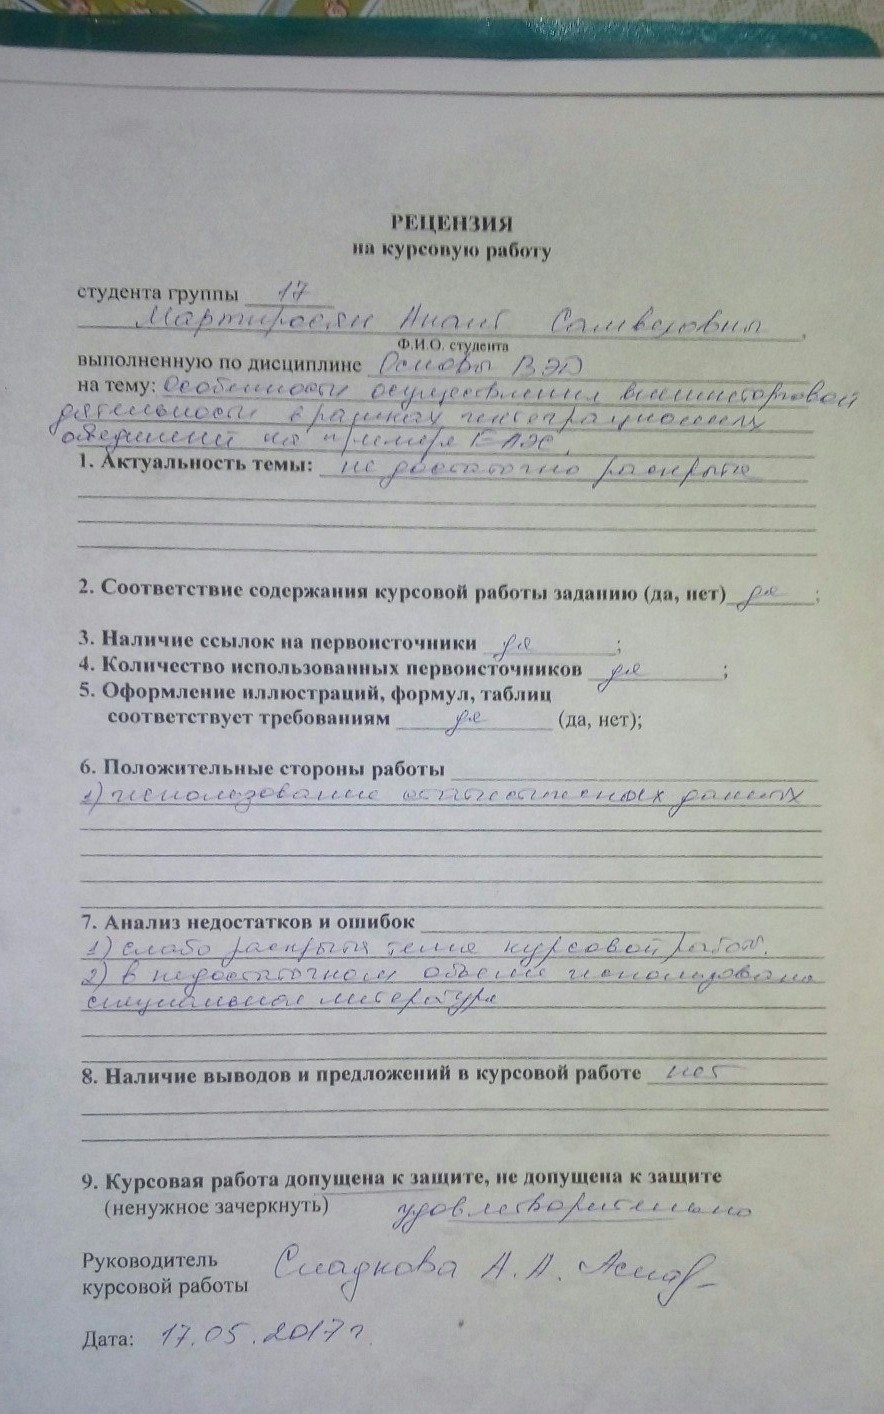 РЕЦЕНЗИЯ
на курсовую работу
студента группы 17
Мартиросян Анаит Самвеловны,
Ф.И.О. студента
выполненную по дисциплине Основы ВЭД
на тему: Особенности осуществления внешнеторговой
деятельности в рамках интеграционных
объединений на примере ЕАЭС.
1. Актуальность темы: не достаточно раскрыта
2. Соответствие содержания курсовой работы заданию (да, нет) да ;
3. Наличие ссылок на первоисточники да ;
4. Количество использованных первоисточников да ;
5. Оформление иллюстраций, формул, таблиц
соответствует требованиям да (да, нет);
6. Положительные стороны работы
1) использование статистических данных
7. Анализ недостатков и ошибок
1) слабо раскрыта тема курсовой работ.
2) в недостаточном объеме использована
специальная литература
8. Наличие выводов и предложений в курсовой работе нет
9. Курсовая работа допущена к защите, не допущена к защите
(ненужное зачеркнуть) удовлетворительно
Руководитель
курсовой работы Сладкова А.А.
Дата: 17.05.2017г